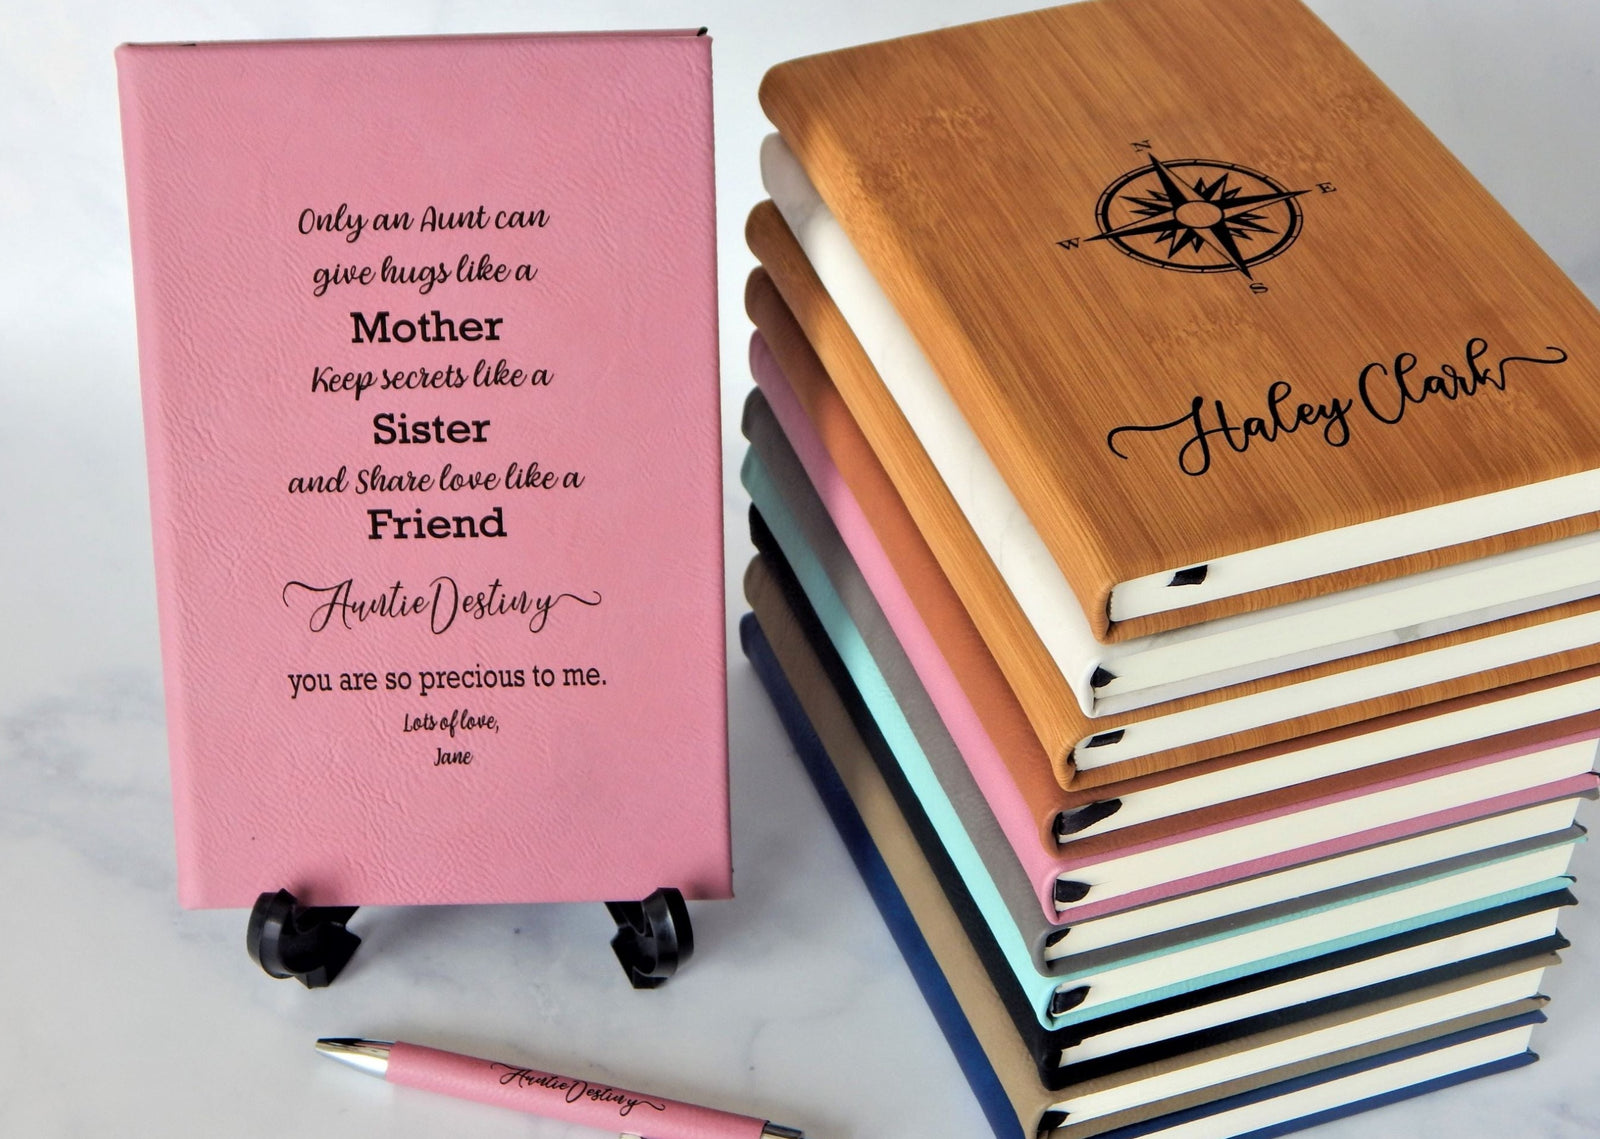 Only an Aunt can
give hugs like a
Mother
Keep secrets like a
Sister
and Share love like a
Friend
Auntie Destiny
you are so precious to me.
Lots of love,
Jane
N
E
W
S
Haley Clark
Auntie Destiny